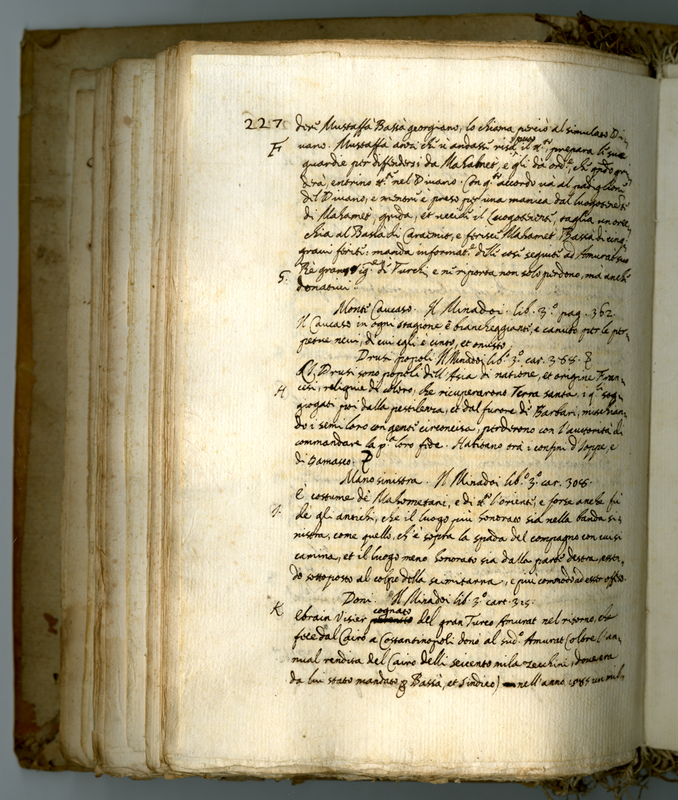 227 detto Mustaffà Bassà georgiano, lo chiama perciò al simulato Di=
F vano. Mustaffà anzi che vi andasse, prepara le sue
guardie per diffendersi da Mahamet, e gli dà ord.e, che
entrino nel Divano. Con q.o accordo và al padiglione
del Divano, e mentre è preso per una manica dal luogotenente
di Mahamet, grida, et uccide il luogotenente, taglia un'orec=
chia al Bassà di Caraemit, e ferisce Mahamet Bassà di cinq;
gravi ferite: manda informat.e delle cose seguite ad Amurat suo
Rè gran Sig.e di Turchi, e ne riporta non solo perdono, ma anche
G. donativi.
Monte Caucaso. Il Minadoi. lib. 3.o pag. 362.
Il Caucaso in ogni stagione è biancheggiante, e canuto per le per=
petue nevi, di cui egli è cinto, et onusto.
Drusi popoli Il Minadoi lib.o 3.o car. 388.
Li Drusi sono popoli dell'Asia di natione, et origine Fran=
H cesi, reliquie di coloro, che ricuperarono Terra santa, i q.li sog=
giogati poi dalla pestilenza, et dal furore di Barbari, mischian=
do i semi loro con gente circoncisa, perderono con l'autorità di
commandare la p.a loro fede. Habitano ora i confini d'Ioppe, e
di Damasco.
Mano sinistra. Il Minadoi lib.o 3.o car. 308.
È costume de Mahomettani, e di l'oriente, e forse anche fù
de gli antichi, che il luogo più honorato sia nella banda si=
nistra, come quello, ch'è sopra la spada del compagno con cui si
camina, et il luogo meno honorato sia dalla parte destra, essen=
do sottoposto al colpo della scimitarra, e più commodo ad esser offeso.
Doni. Il Minadoi lib. 3.o cart. 315.
K Ebrain Visier cognato del gran Turco Amurat nel ritorno, che
fece dal Cairo a Costantinopoli donò al sud.o Amurat (oltre l'an=
nual rendita del Cairo delli seicento mila zecchini, dove era
da lui stato mandato Bassà, et Sindico) nell'anno 1585 un